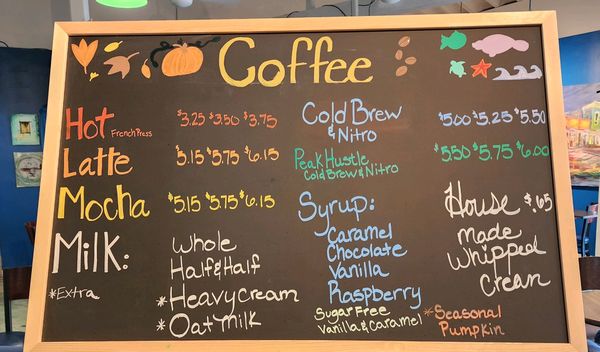 Coffee
Hot French Press $3.25 $3.50 $3.75
Latte $5.15 $5.75 $6.15
Mocha $5.15 $5.75 $6.15
Milk:
*Extra
Whole
Half & Half
*Heavy Cream
*Oat Milk
Cold Brew
& Nitro
$5.00 $5.25 $5.50
Peak Hustle
Cold Brew & Nitro
$5.50 $5.75 $6.00
Syrup:
Caramel
Chocolate
Vanilla
Raspberry
Sugar Free
Vanilla & Caramel
*Seasonal
Pumpkin
House $.65
made
Whipped
Cream